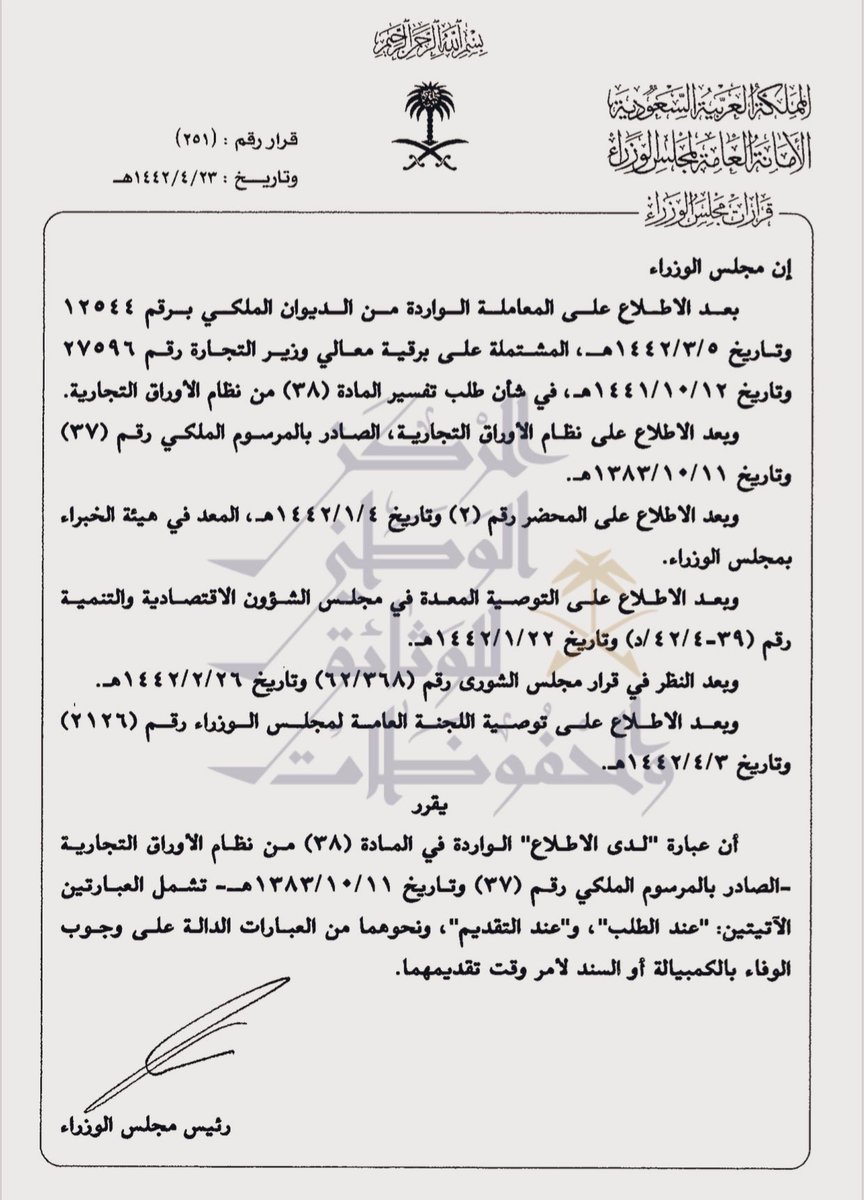 بسم الله الرحمن الرحيم
المملكة العربية السعودية
الأمانة العامة لمجلس الوزراء
قرار رقم : (٢٥١)
وتاريـــخ : ١٤٤٢/٤/٢٣هـ
قرارات مجلس الوزراء
إن مجلس الوزراء
بعد الاطلاع على المعاملة الواردة من الديوان الملكي برقم ١٢٥٤٤
وتاريخ ١٤٤٢/٣/٥هـ، المشتملة على برقية معالي وزير التجارة رقم ٢٧٥٩٦
وتاريخ ١٤٤١/١٠/١٢هـ، في شأن طلب تفسير المادة (٣٨) من نظام الأوراق التجارية.
وبعد الاطلاع على نظام الأوراق التجارية، الصادر بالمرسوم الملكي رقم (٣٧)
وتاريخ ١٣٨٣/١٠/١١هـ.
وبعد الاطلاع على المحضر رقم (٢) وتاريخ ١٤٤٢/١/٤هـ، المعد في هيئة الخبراء
بمجلس الوزراء.
وبعد الاطلاع على التوصية المعدة في مجلس الشؤون الاقتصادية والتنمية
رقم (٣٩-٤٢/٤/د) وتاريخ ١٤٤٢/١/٢٢هـ.
وبعد النظر في قرار مجلس الشورى رقم (٦٢/٣٦٨) وتاريخ ١٤٤٢/٢/٢٦هـ.
وبعد الاطلاع على توصية اللجنة العامة لمجلس الوزراء رقم (٢١٢٦)
وتاريخ ١٤٤٢/٤/٣هـ.
يقرر
أن عبارة "لدى الاطلاع" الواردة في المادة (٣٨) من نظام الأوراق التجارية
-الصادر بالمرسوم الملكي رقم (٣٧) وتاريخ ١٣٨٣/١٠/١١هـ- تشمل العبارتين
الآتيتين: "عند الطلب"، و"عند التقديم"، ونحوهما من العبارات الدالة على وجوب
الوفاء بالكمبيالة أو السند لأمر وقت تقديمهما.
رئيس مجلس الوزراء
المركز
الوطني
للوثائق
والمحفوظات